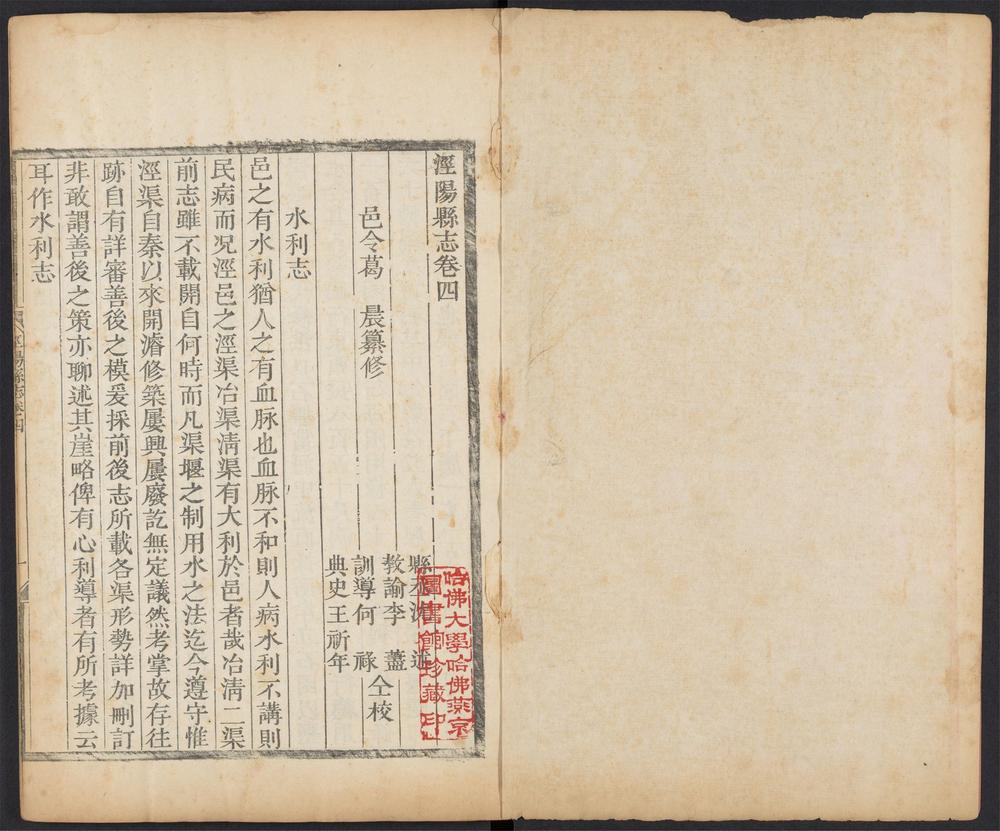 涇陽縣志卷四
邑令葛 晨纂修
縣丞沈 述
教諭李 藎
訓導何 祿
典史王祈年
仝校
水利志
邑之有水利猶人之有血脉也血脉不和則人病水利不講則
民病而况涇邑之涇渠冶渠清渠有大利於邑者哉冶清二渠
前志雖不載開自何時而凡渠堰之制用水之法迄今遵守惟
涇渠自秦以來開濬修築屢興屢廢訖無定議然考掌故存往
跡自有詳審善後之模爰採前後志所載各渠形勢詳加刪訂
非敢謂善後之策亦聊述其崖略俾有心利導者有所考據云
耳作水利志
涇陽縣志卷四
一
哈佛大學哈佛燕京
圖書館珍藏印